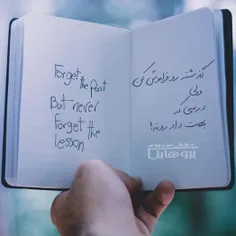 Forget
the Past
But never
forget the
lesson
گذشته رو فراموش کن
ولی
درسی که
بهت داد رو نه!